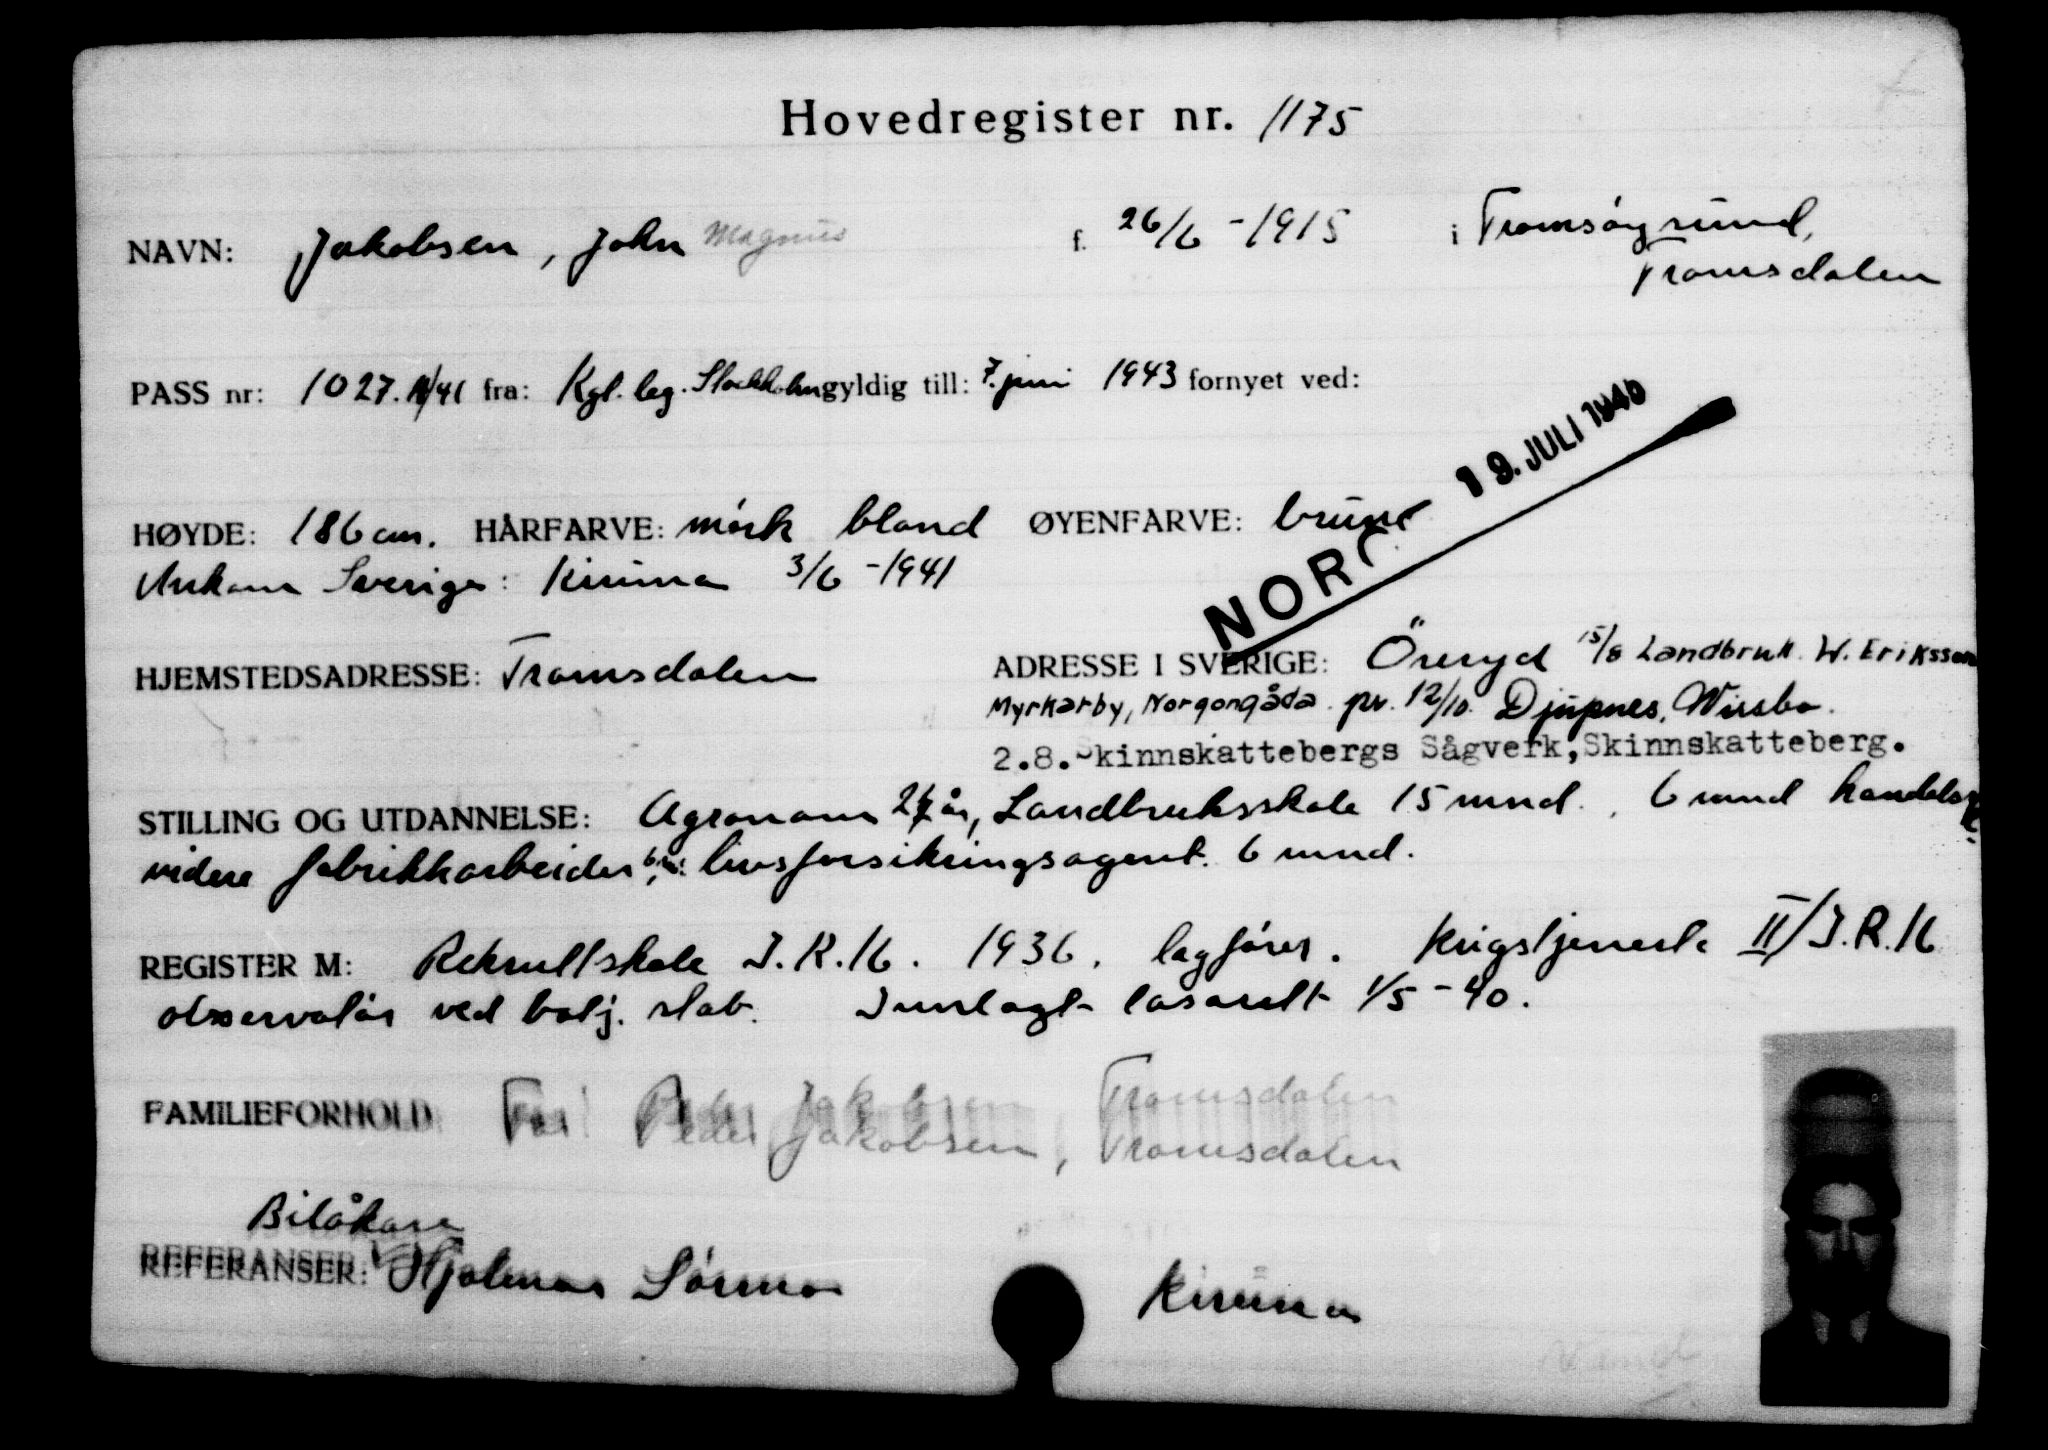 Hovedregister nr. 1175
NAVN: Jakobsen, John Magnus f. 26/6 - 1915 i Tromsøysund,
Tromsdalen
PASS nr: 1027. /41 fra: Kgl. leg. Stockholm gyldig till: 7. juni 1943 fornyet ved:
19. JULI 1945
NORGE
HØYDE: 186 cm. HÅRFARVE: mörk blond ØYENFARVE: brune
Ankom Sverige: Kiruna 3/6 - 1941
HJEMSTEDSADRESSE: Tromsdalen ADRESSE I SVERIGE: Öreryd 15/8 Landbruk. W. Eriksson
Myrkarby, Norgongåda. pr. 12/10. Djupnes, Wissbo.
2.8. Skinnskattebergs Sågverk, Skinnskatteberg.
STILLING OG UTDANNELSE: Agronom 2 år, Landbruksskole 15 mnd., 6 mnd handelssk.
videre fabrikkarbeider, livsforsikringsagent. 6 mnd.
REGISTER M: Rekruttskole I.R.16. 1936. lagfører. Krigstjeneste II/I.R.16
observatör ved batj. stab. Innlagt lasarett 1/5 - 40.
FAMILIEFORHOLD: Far: Peder Jakobsen, Tromsdalen
Bilåkare
REFERANSER: Hjalmar Sörmo Kiruna